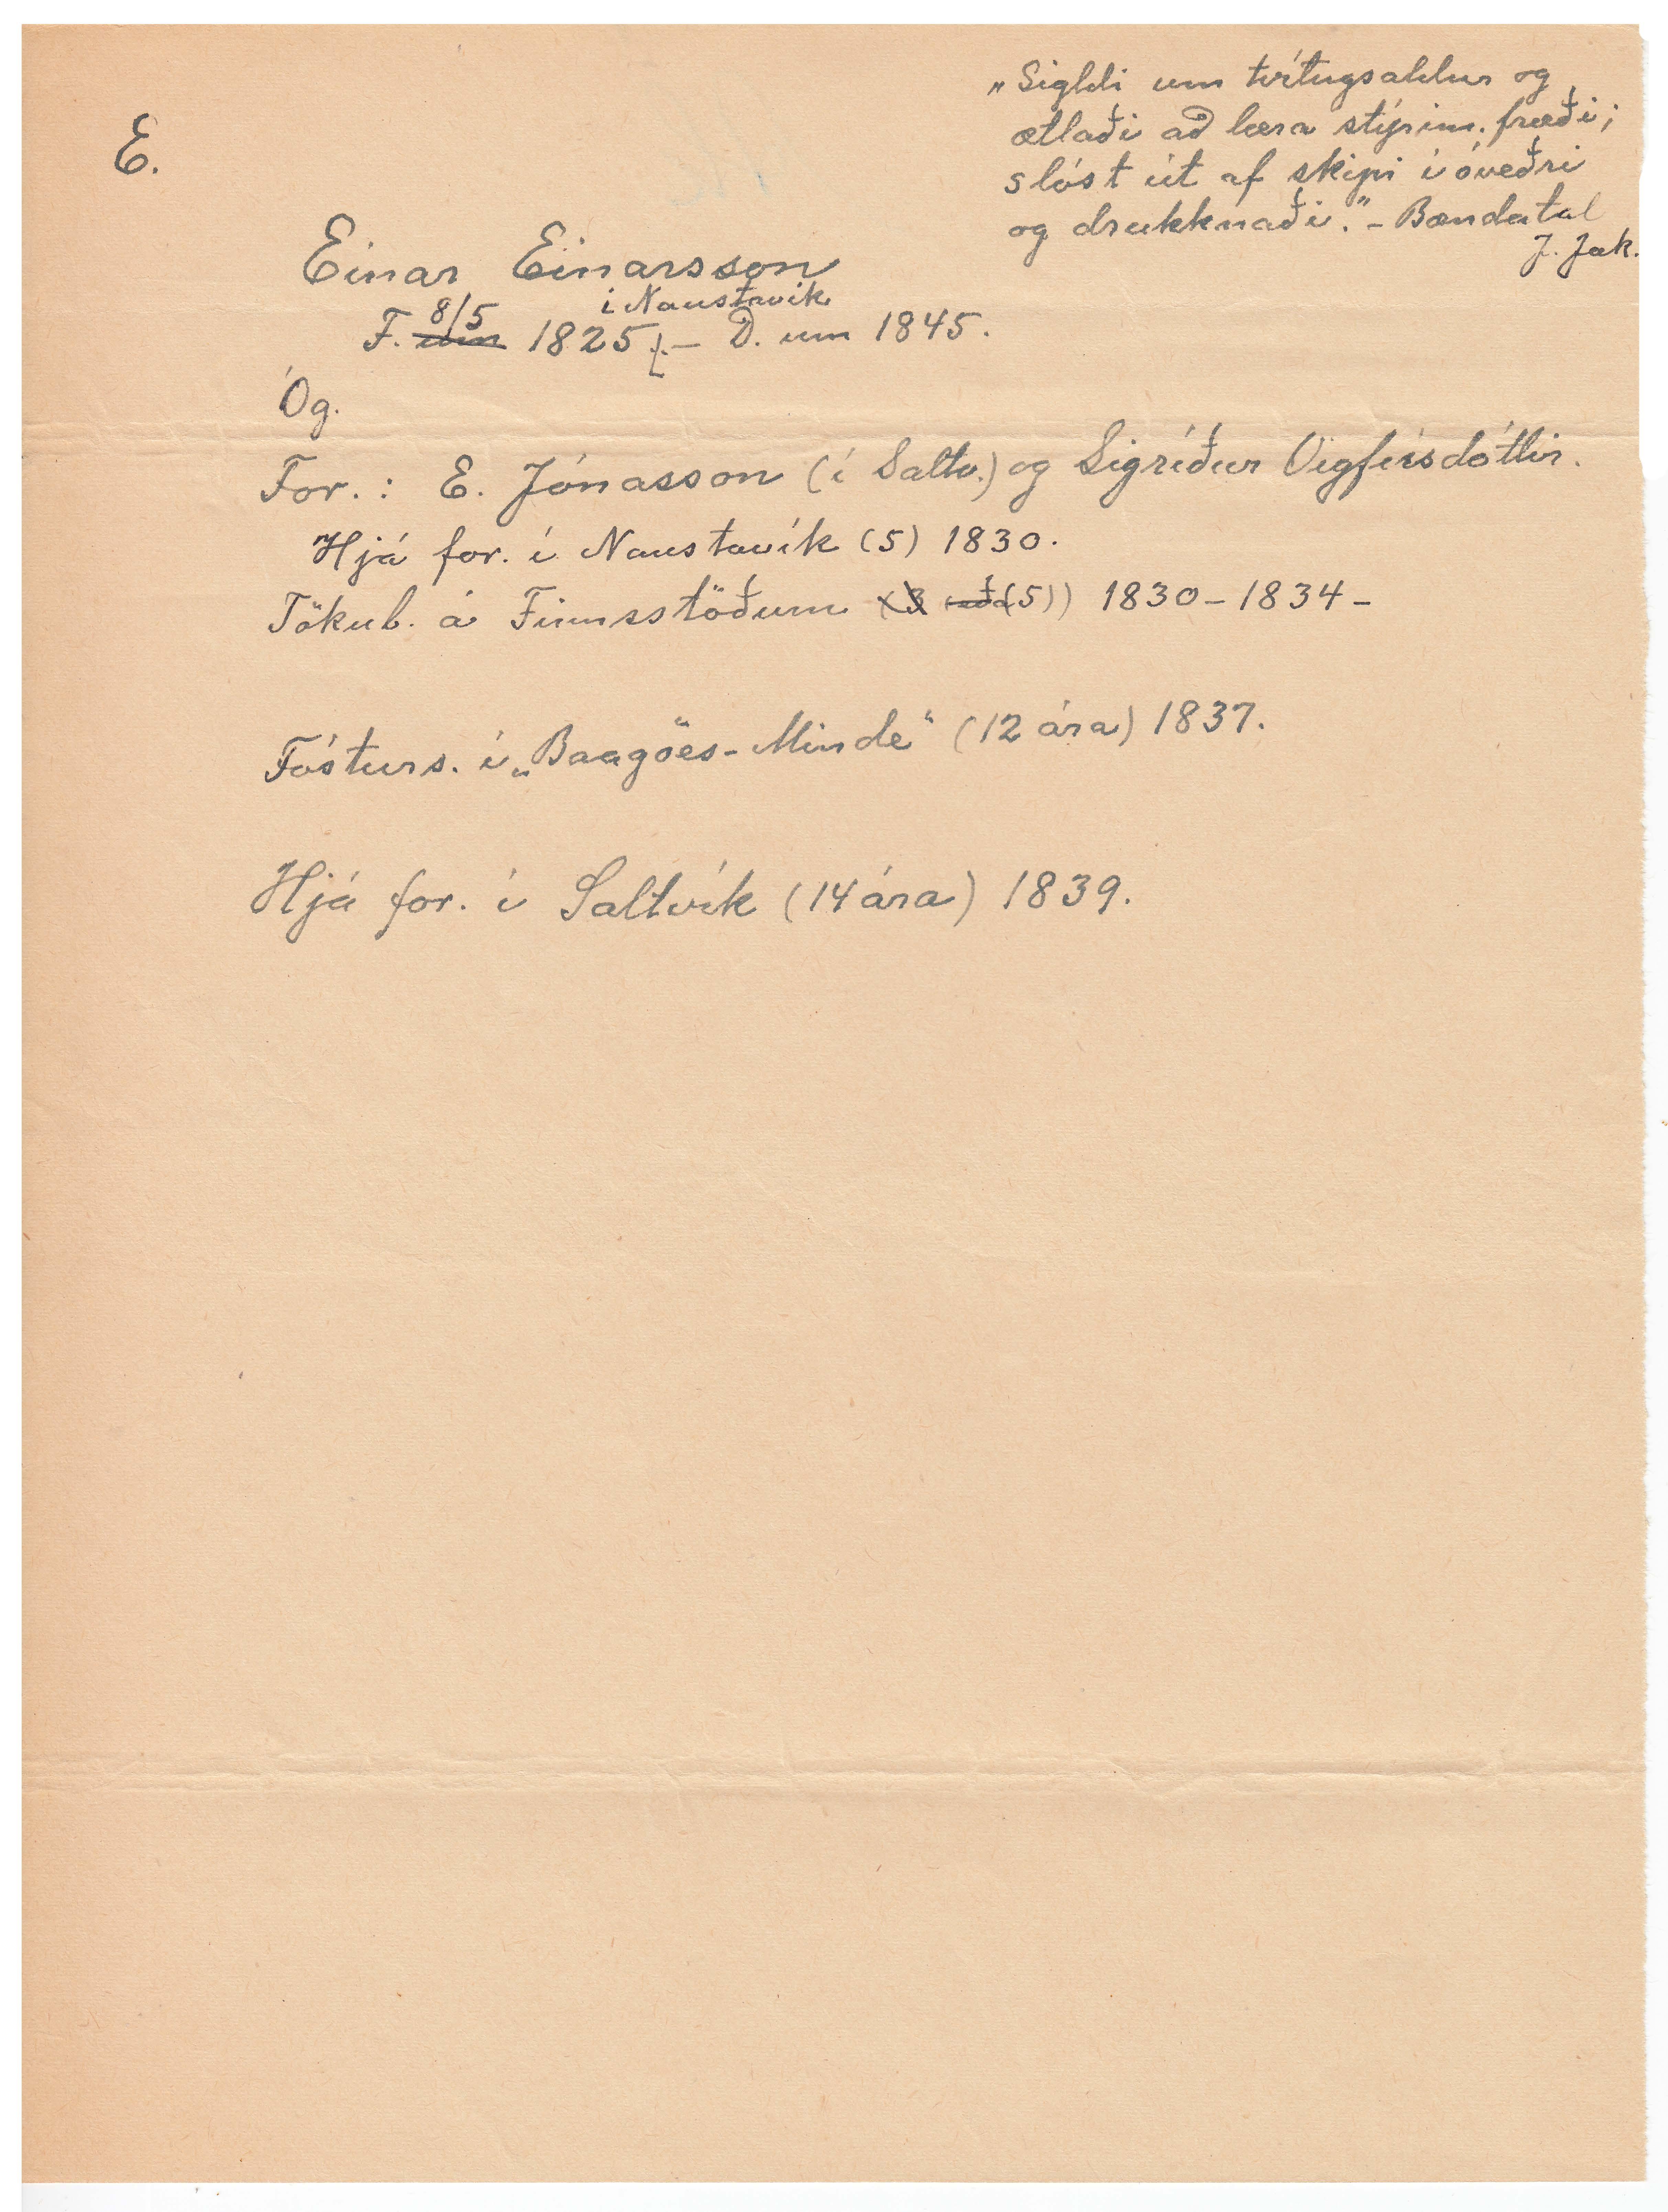 E.
„Sigldi um tvítugsaldur og
ætlaði að læra stýrim. fræði;
slóst út af skipi í óveðri
og drukknaði." - Bændatal
J. Jak.
Einar Einarsson
í Naustavík
F. 8/5 um 1825 . - D. um 1845.
Óg.
For.: E. Jónasson (í Saltv.) og Sigríður Vigfúsdóttir.
Hjá for. í Naustavík (5) 1830.
Tökub. á Finnsstöðum (3 eða (5)) 1830-1834-
Fósturs. í „Baagöes-Minde" (12 ára) 1837.
Hjá for. í Saltvík (14 ára) 1839.